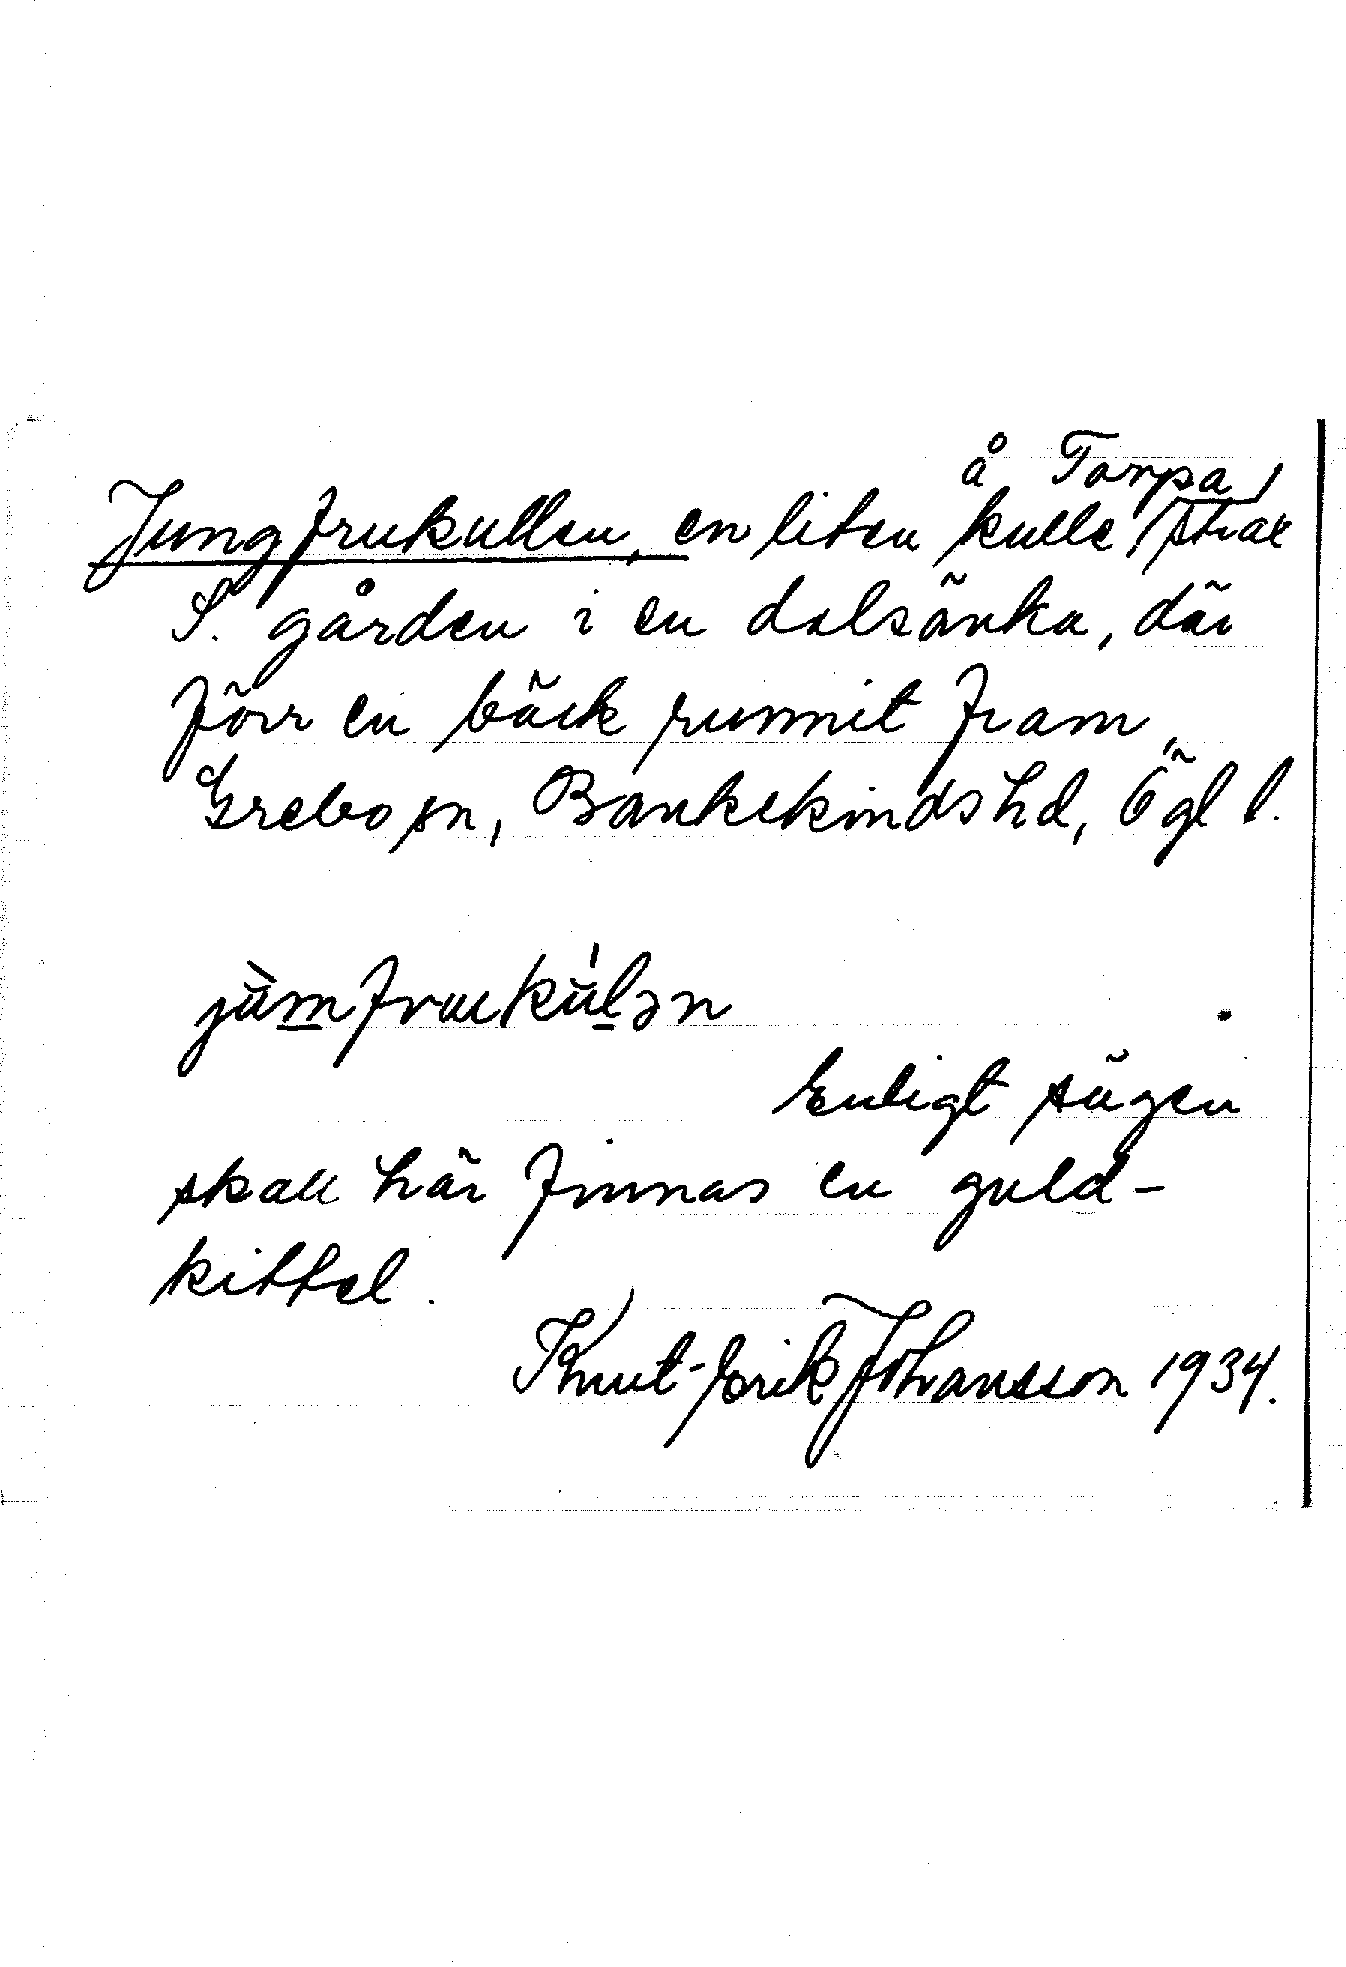 å Torpa,
Jungfrukullen, en liten kulle strax
S. gården i en dalsänka, där
förr en bäck runnit fram,
Grebo sn, Bankekinds hd, Ögl l.
Enligt sägen
skall här finnas en guld-
kittel.
Knut-Erik Johansson 1934.